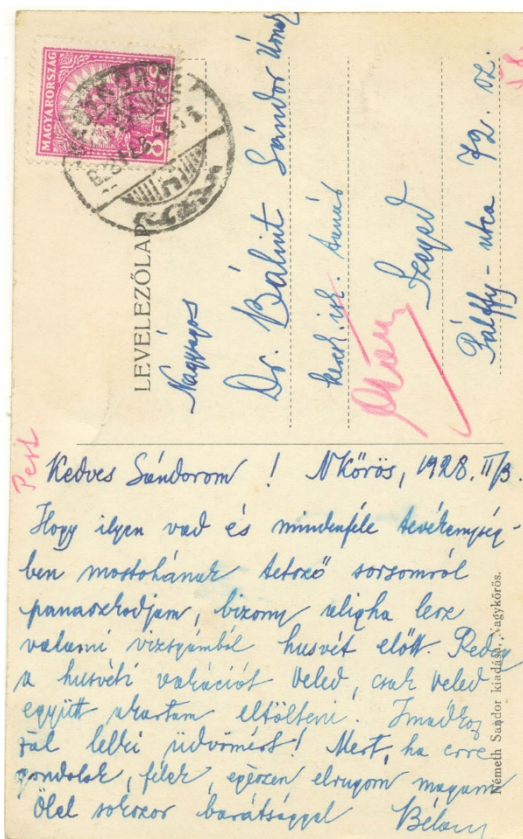 MAGYARORSZÁG
8
LEVELEZŐLAP
Nagyságos
Dr. Bálint Sándor Úrnak
keresk. isk. tanár
Szeged
Pálffy-utca 72. sz.
Pest
Kedves Sándorom! NKőrös, 1928. II/3.
Hogy ilyen vad és mindenféle tevékenység-
ben mostohának tetsző sorsomról
panaszkodjam, bizony aligha lesz
valami vizsgámból husvét előtt. Pedig
a husvéti vakációt veled, csak veled
együtt akartam eltölteni. Imádkoz
zál lelki üdvömért! Mert, ha erre
gondolok, félek, egészen elrugom magam
Ölel sokszor barátsággal Bélam
Németh Sándor kiadása, Nagykőrös.